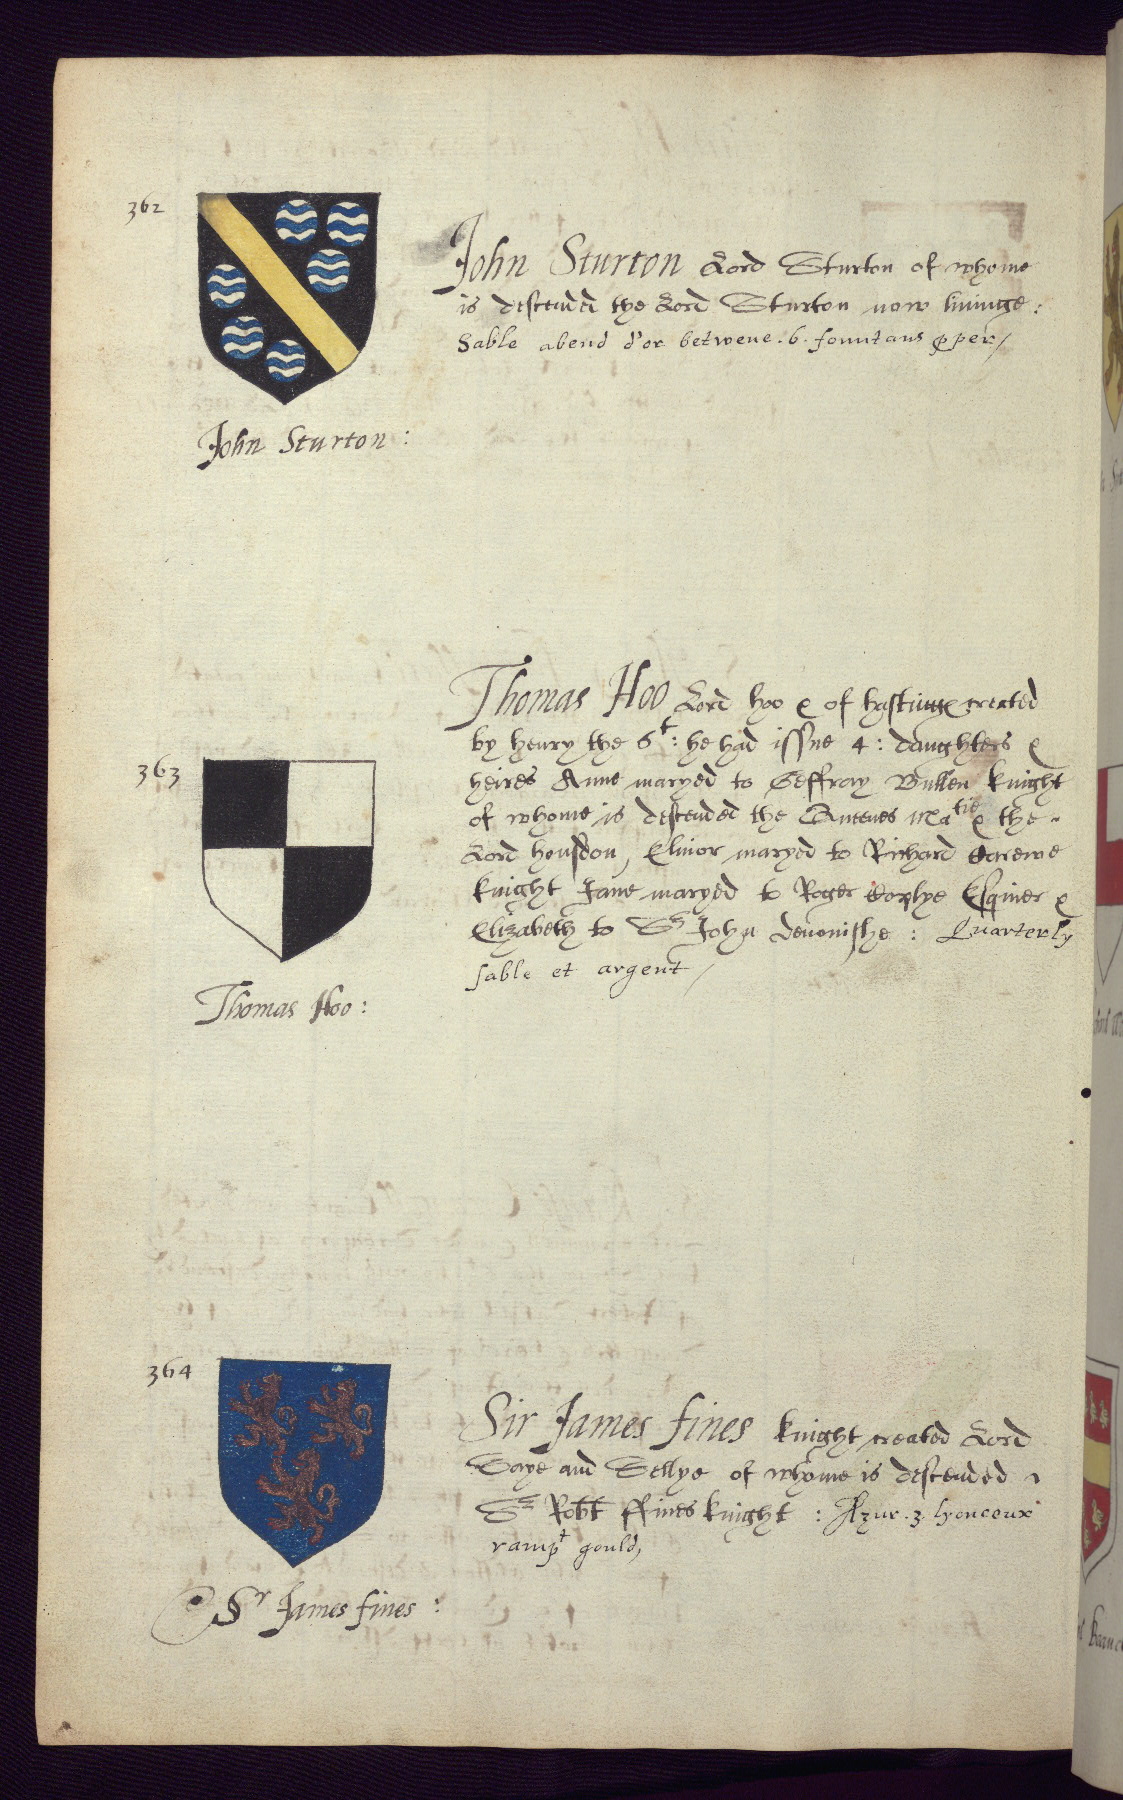 362
John Sturton Lord Sturton of whome
is descended the Lord Sturton now livinge :
Sable a bend d'or betwene . 6 . fountans pper /
John Sturton :
363
Thomas Hoo Lord hoo & of hastinge created
by henry the 6t : he had issue 4 : daughters &
heires Anne maryed to Geffray Bullen knight
of whome is descended the Queenes Matie & the
Lord housdon, Elinor maryed to Richard Carewe
knight Jane maryed to Roger Coplye Esquier &
Elizabeth to Sr John devonishe : Quarterly
sable et argent /
Thomas Hoo :
364
Sir James fines knight created Lord
Saye and Sellye of whome is descended
Sr Robt ffines knight : Azur . 3 . lyonceux
rampt gould,
Sr James fines :